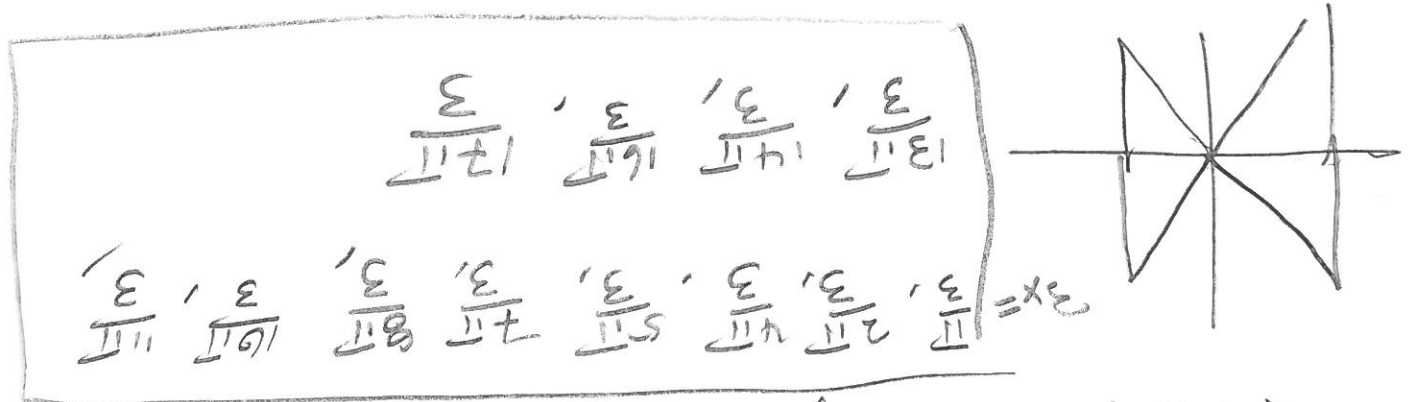 3x= π/3, 2π/3, 4π/3, 5π/3, 7π/3, 8π/3, 16π/3, 11π/3,
13π/3, 14π/3, 16π/3, 17π/3